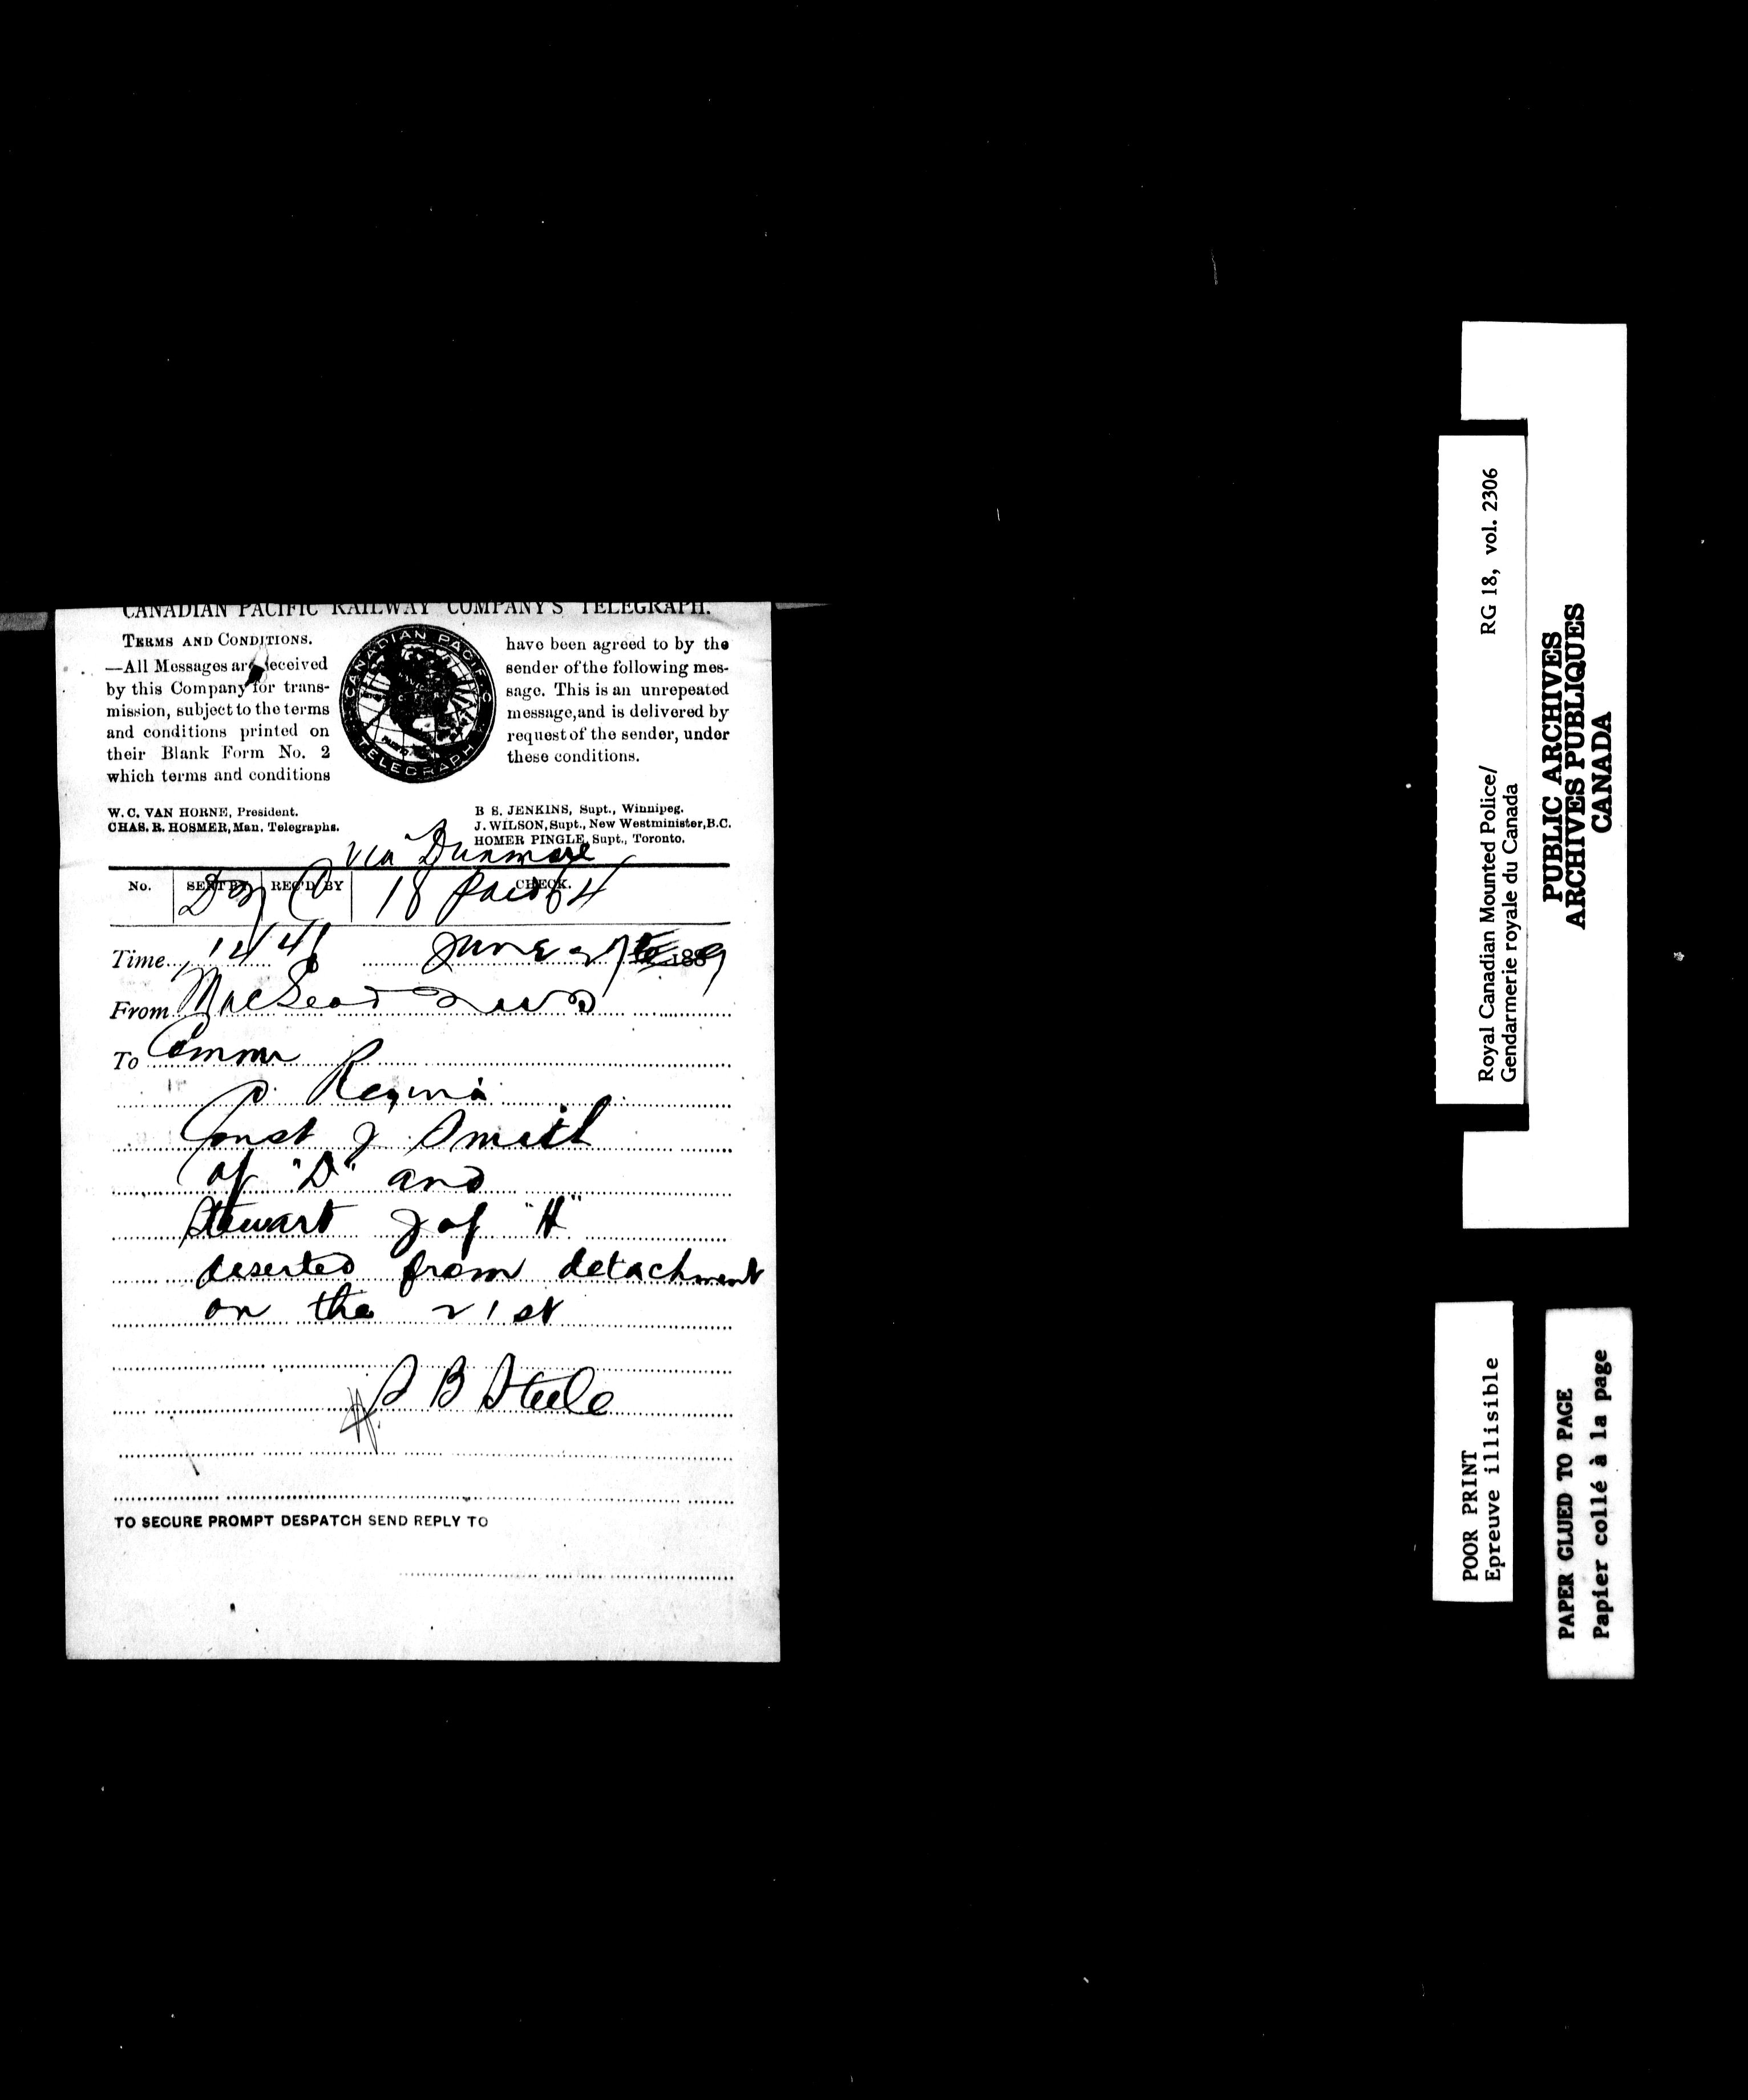 CANADIAN PACIFIC RAILWAY COMPANY'S TELEGRAPH.
TERMS AND CONDITIONS.
—All Messages are received
by this Company for trans-
mission, subject to the terms
and conditions printed on
their Blank Form No. 2
which terms and conditions
CANADIAN PACIFIC
TELEGRAPH
have been agreed to by the
sender of the following mes-
sage. This is an unrepeated
message, and is delivered by
request of the sender, under
these conditions.
W. C. VAN HORNE, President.
CHAS. R. HOSMER, Man. Telegraphs.
B S. JENKINS, Supt., Winnipeg.
J. WILSON, Supt., New Westminister, B.C.
HOMER PINGLE, Supt., Toronto.
via Dunmore
No. SENT BY REC'D BY CHECK.
18 Paid
Time June 1889
From MacLeod
To Commr
Regina
Const J Smith
of "D" and
Stewart J of "H"
deserted from detachment
on the 21st
S B Steele
TO SECURE PROMPT DESPATCH SEND REPLY TO
Royal Canadian Mounted Police/ RG 18, vol. 2306
Gendarmerie royale du Canada
PUBLIC ARCHIVES
ARCHIVES PUBLIQUES
CANADA
POOR PRINT
Epreuve illisible
PAPER GLUED TO PAGE
Papier collé à la page